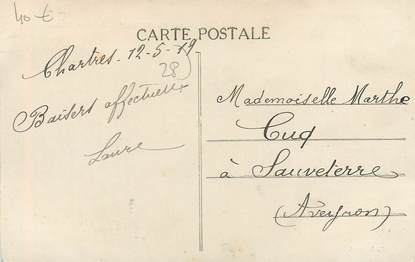 40 €
CARTE POSTALE
Chartres. 12-5-19
28
Baisers affectueux
Laure
Mademoiselle Marthe
Cuq
à Sauveterre
(Aveyron)